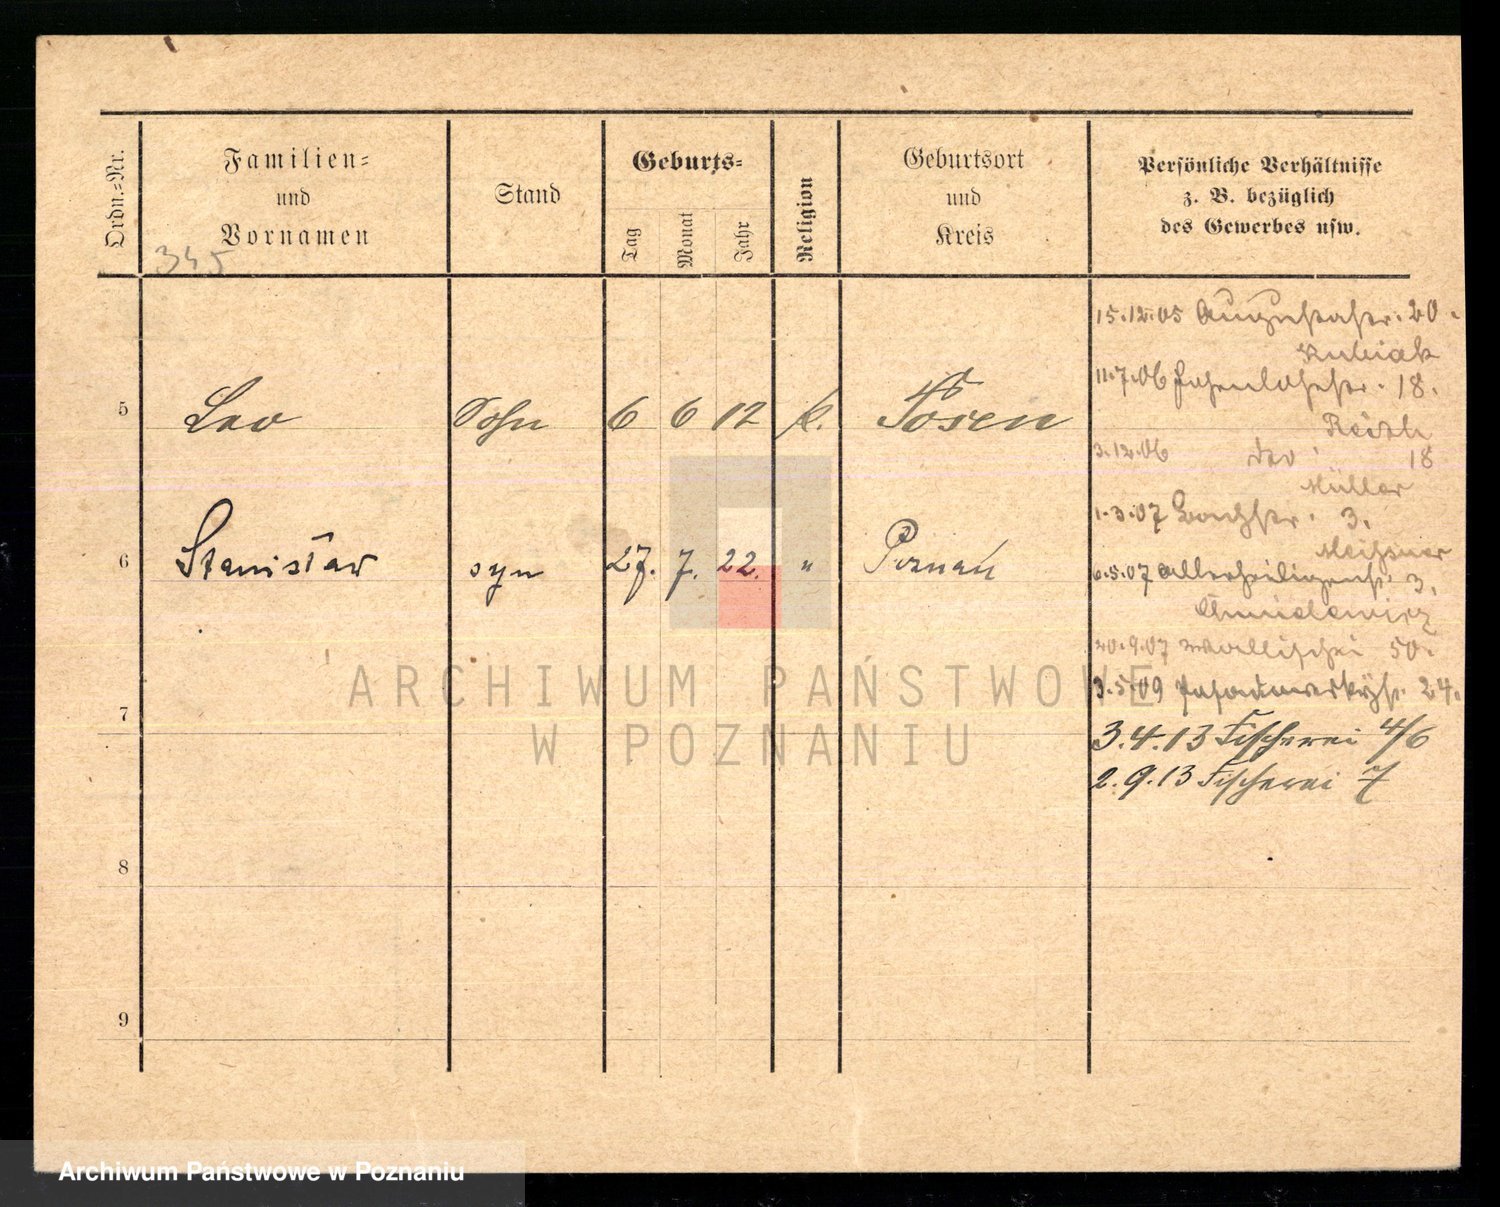 Ordn.=Nr.
Familien=
und
Vornamen
345
Stand
Geburts=
Tag
Monat
Jahr
Religion
Geburtsort
und
Kreis
Persönliche Verhältnisse
z. B. bezüglich
des Gewerbes usw.
5 Leo Sohn 6 6 12 k. Posen
6 Stanisław syn 27. 7. 22. " Poznań
7
8
9
15.12.05 Augustastr. 20.
Kubiak
11.7.06 18.
3.12.06 do 18
Müller
1.3.07 3.
Meißner
6.5.07 Allerheiligenst. 3.
20.9.07 Wallischei 50.
3.5.09 24.
3.4.13 Fischerei 4/6
2.9.13 Fischerei 7
ARCHIWUM PAŃSTWOWE
W POZNANIU
Archiwum Państwowe w Poznaniu